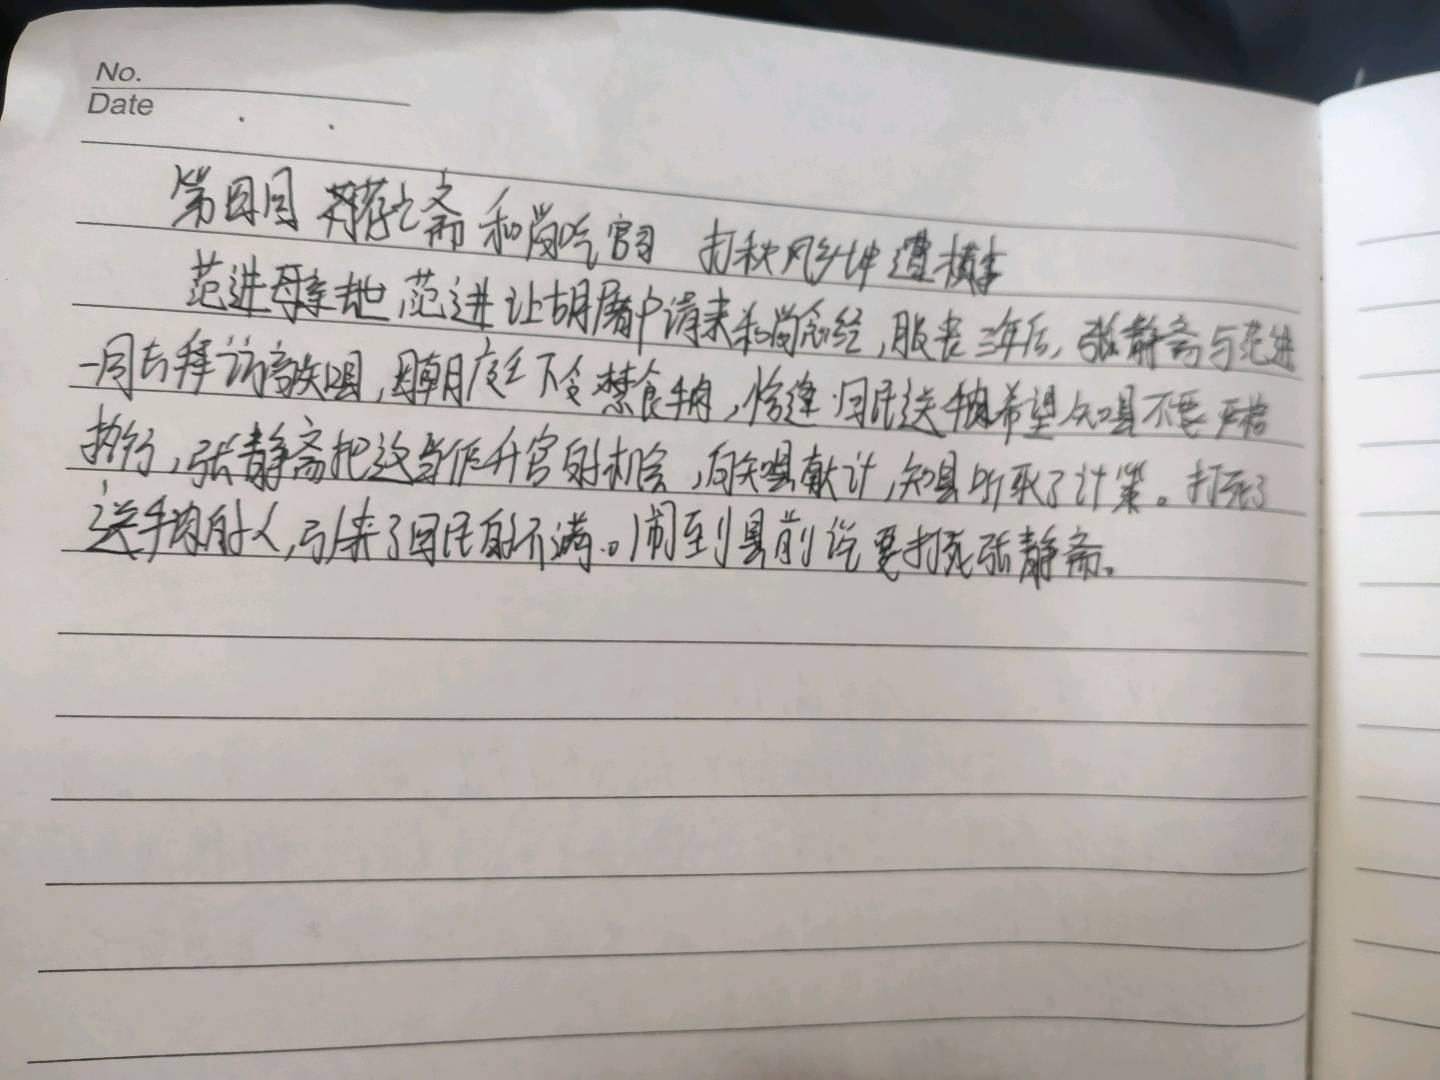 No.
Date
第四回 荐亡斋 和尚吃官司 打秋风乡绅遭横事
范进母亲去世,范进让胡屠户请来和尚念经,服丧三年后,张静斋与范进
一同去拜访高知县,因朝廷下令禁食牛肉,恰逢回民送牛肉希望知县不要严格
执行,张静斋把这当作升官的机会,向知县献计,知县听取了计策。打死了
送牛肉的人,引来了回民的不满。闹到县前说要打死张静斋。